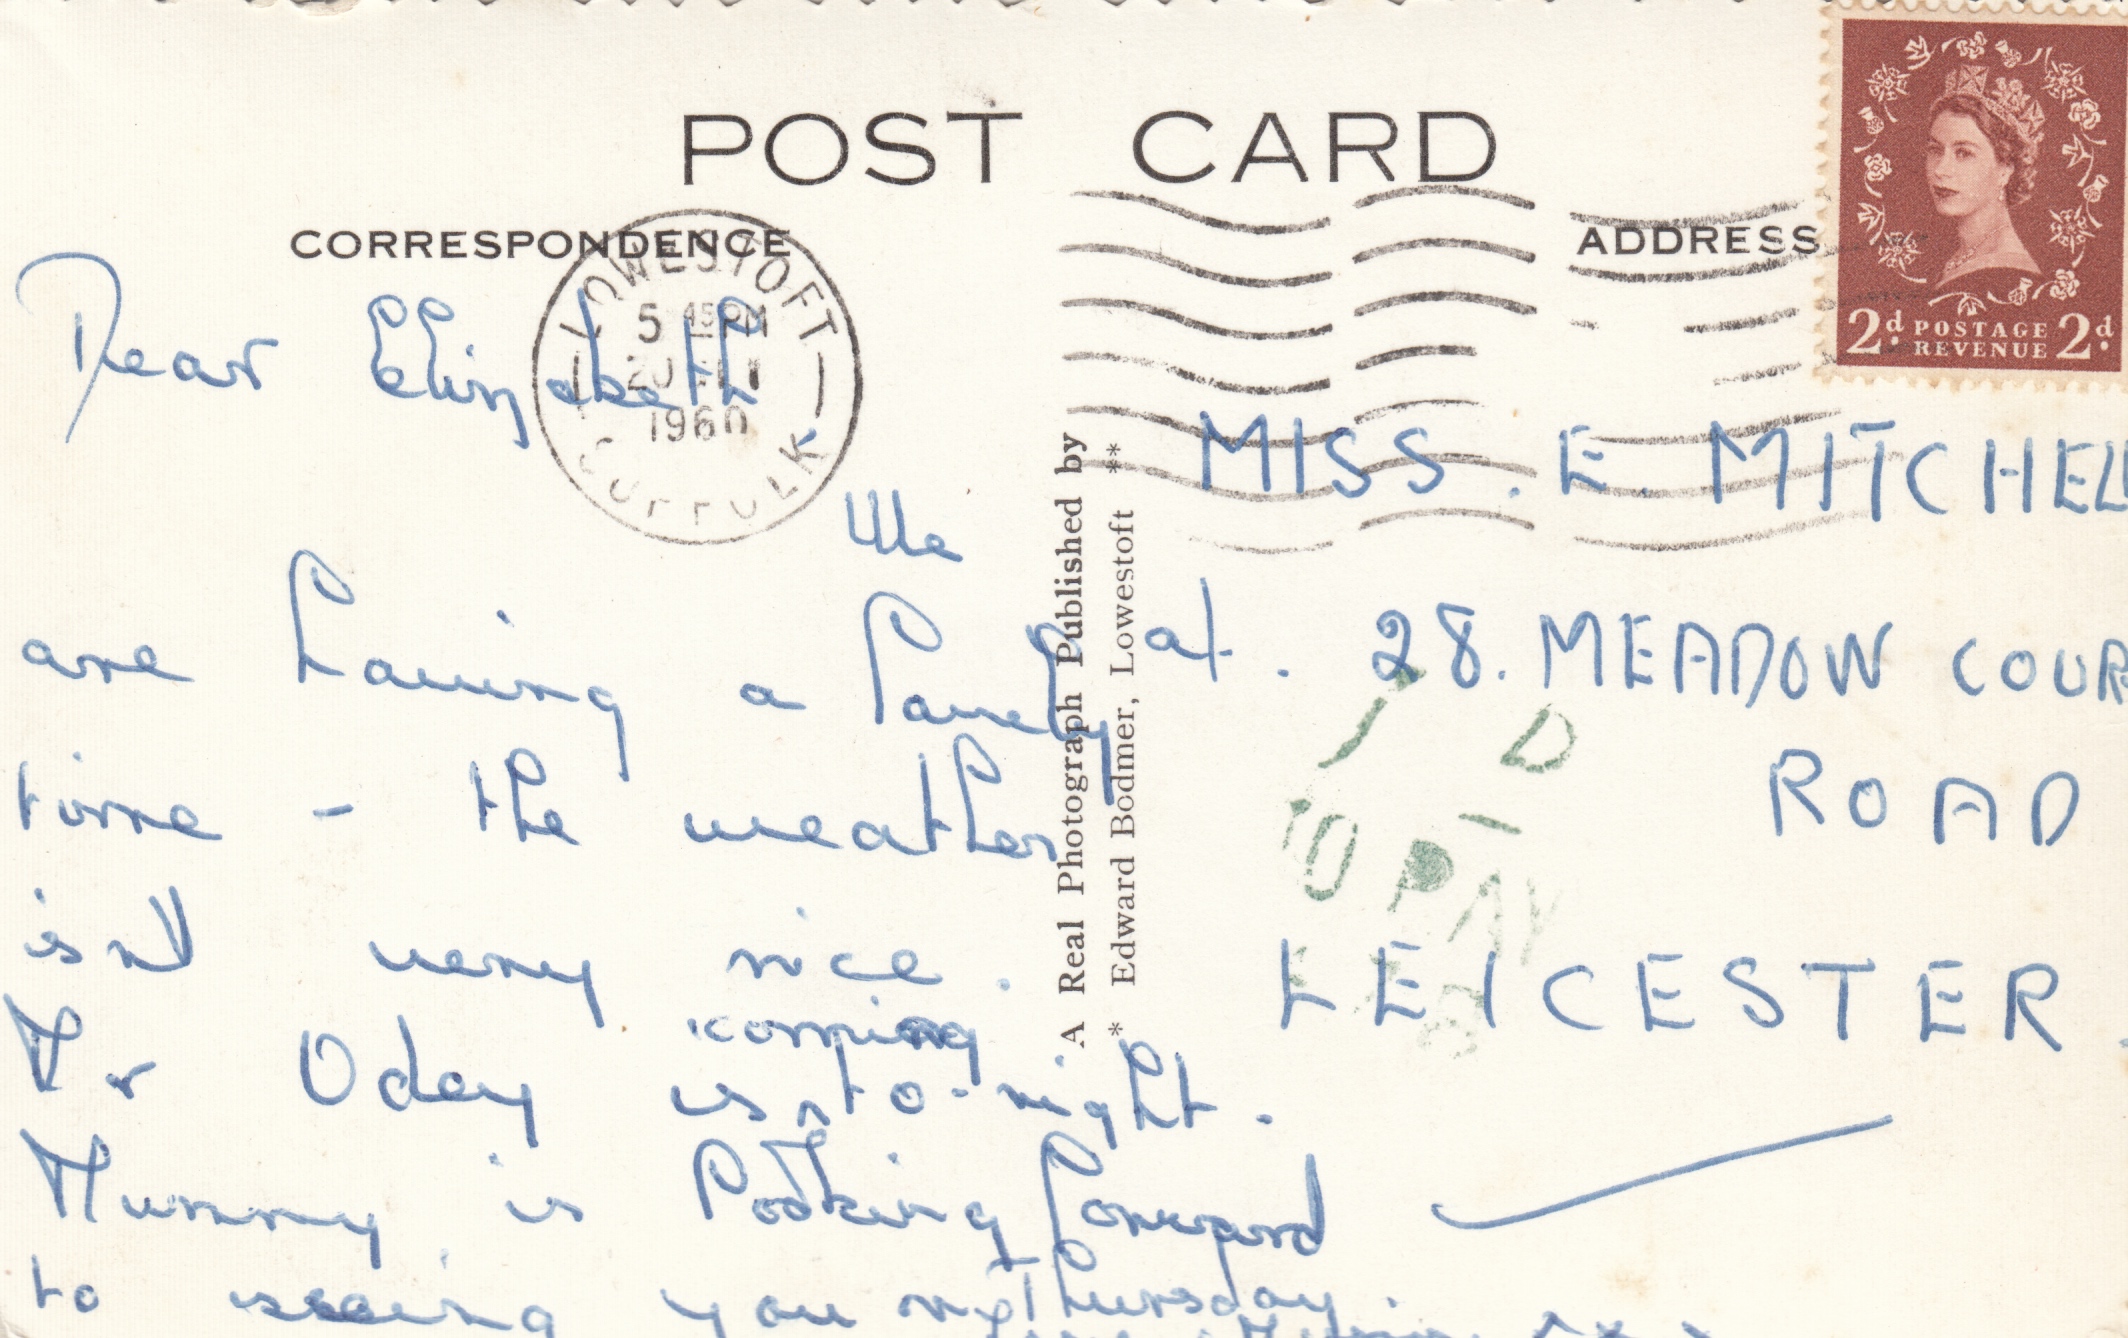 POST CARD
CORRESPONDENCE
ADDRESS
LOWESTOFT
5 45 PM
1960
SUFFOLK
2d POSTAGE 2d
REVENUE
Dear Elizabeth
We
are having a lovely
time - the weather
isn't very nice.
Mr Oday is coming to-night.
Mummy is looking forward
to seeing you on Thursday.
A Real Photograph Published by
* Edward Bodmer, Lowestoft **
MISS. E. MITCHELL
at. 28. MEADOW COUR
ROAD
LEICESTER.
D
TO PAY